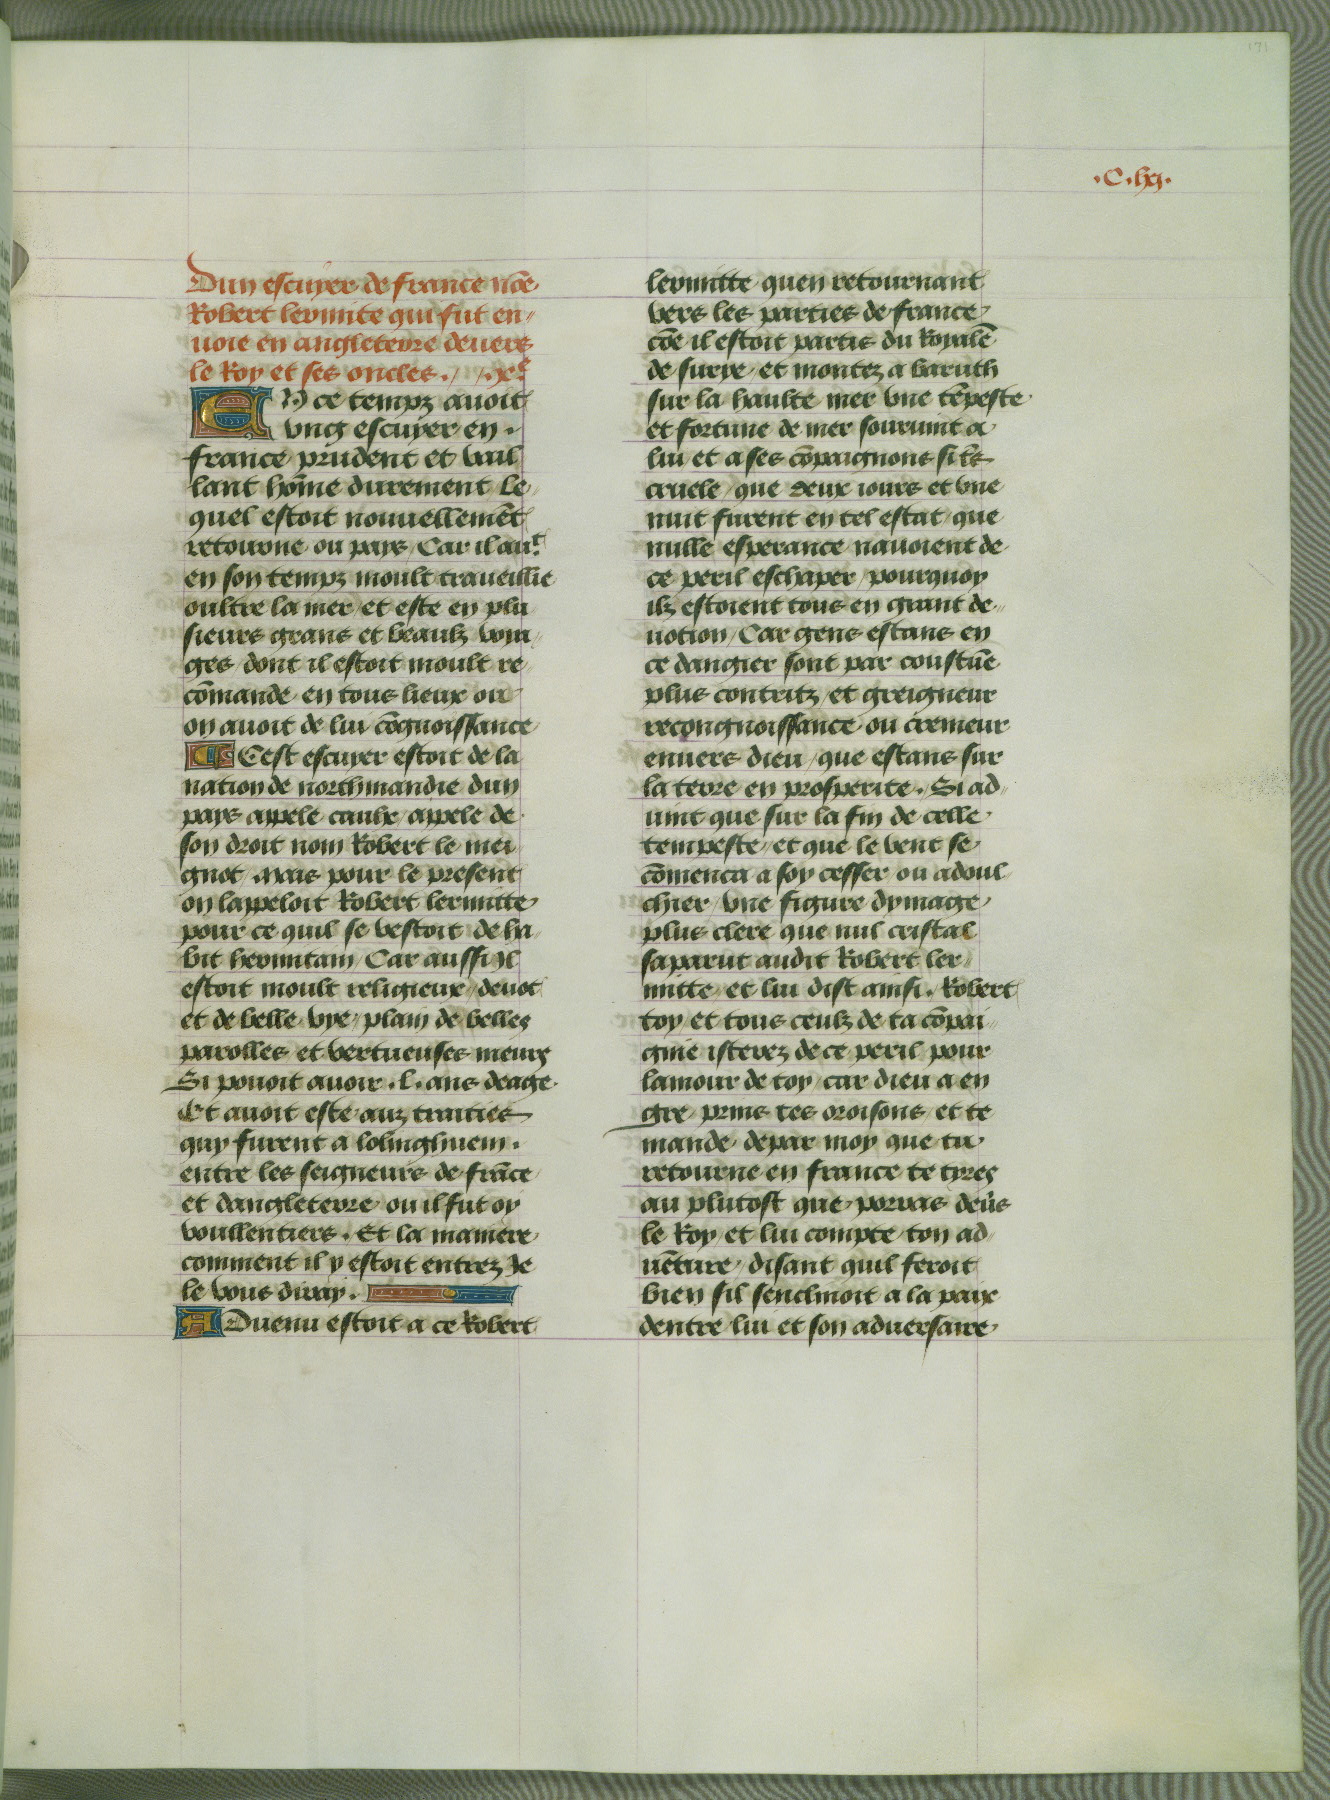 171
.C.lxj.
Dun escuyer de france nōe
Robert lermite qui fut en-
uoie en angleterre deuers
le Roy et ses oncles.
En ce tempz auoit
vng escuyer en.
france prudent et vail
lant hōme durement Le
quel estoit nouuellemēt
retourne ou pays Car il auᵗ
en son tempz moult traueillie
oultre la mer et este en plu
sieurs grans et beaulz voia
ges dont il estoit moult re
cōmande en tous lieux ou
on auoit de lui cōgnoissance
Cest escuyer estoit de la
nation de northmandie dun
pays appele caulx appele de
son droit nom Robert le mei
gnot Mais pour le present
on lappeloit Robert lermitte
pour ce quil se vestoit de ha
bit hermitain Car aussi Il
estoit moult religieux deuot
et de belle vye plain de belles
parolles et vertueuses meurs
Si pouoit auoir .l. ans deage
Et auoit este aux traities
quy furent a lolinghuem.
entre les seigneurs de frāce
et dangleterre ou il fut oy
voullentiers. Et la maniere
comment il y estoit entrez Je
le vous diray.
ADuenu estoit a ce Robert
lermitte quen retournant
vers les parties de france
cōe il estoit partis du Royalē
de surye et montez a baruth
sur la haulte mer vne tēpeste
et fortune de mer souruint a
lui et a ses cōpaignons si tˢ
cruele que deux iours et vne
nuit furent en tel estat que
nulle esperance nauoient de
ce peril eschaper pourquoy
ilz estoient tous en grant de-
uotion Car gens estans en
ce dangier sont par coustūe
plus contritz et greigneur
recongnoissance ou cremeur
enuers dieu que estans sur
la terre en prosperite. Si ad
uint que sur la fin de celle
tempeste et que le vent se
cōmenca a soy cesser ou adoul
chier vne figure dymage
plus clere que nul cristal
saparut audit Robert ler
mitte et lui dist ainsi. Robert
toy et tous ceulz de ta cōpai
gnie isterez de ce peril pour
lamour de toy car dieu a en
gre prins tes oroisons et te
mande depar moy que tu
retourne en france te tyres
au plutost que porras deūs
le Roy et lui compte ton ad
uēture disant quil feroit
bien sil senclinoit a la paix
dentre lui et son aduersaire